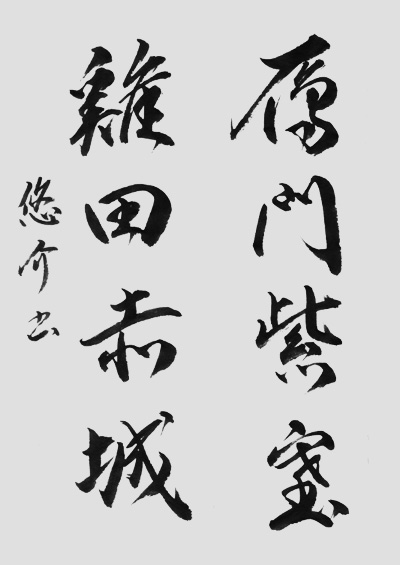 雁門紫塞
雞田赤城
悠介书